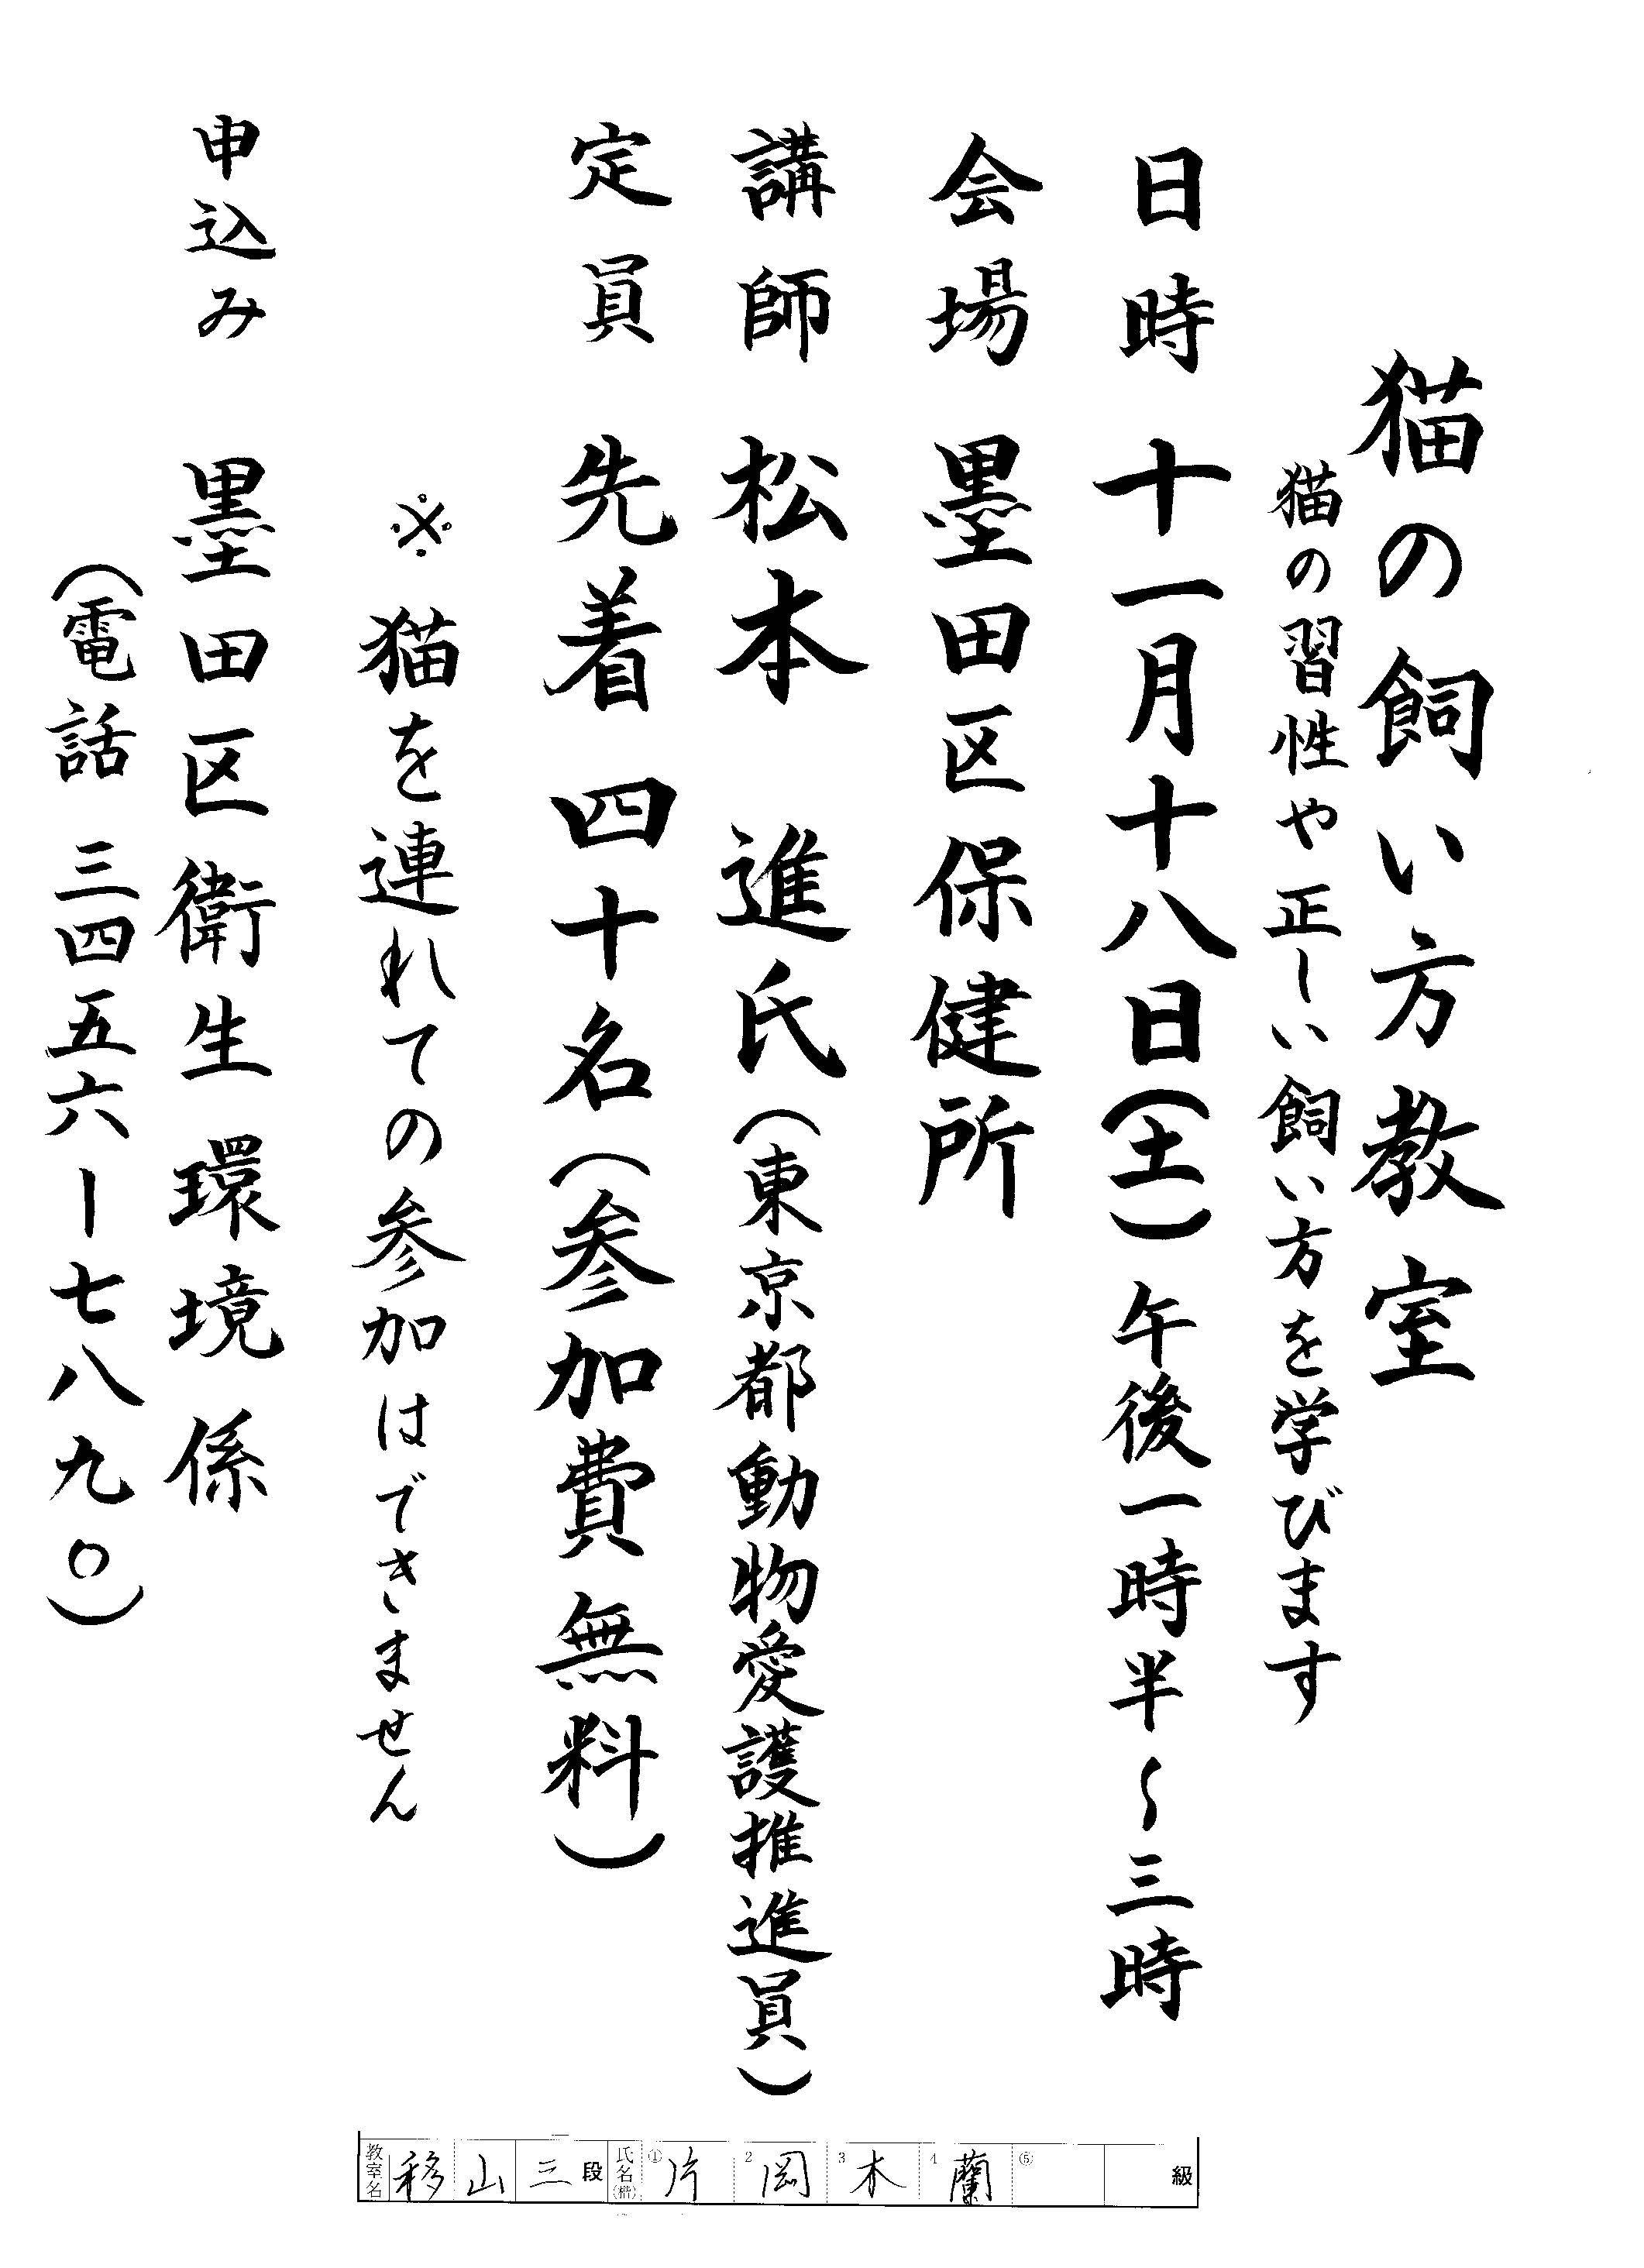 猫の飼い方教室
猫の習性や正しい飼い方を学びます
日時 十一月十八日(土) 午後一時半〜三時
会場 墨田区保健所
講師 松本 進氏(東京都動物愛護推進員)
定員 先着四十名(参加費無料)
※ 猫を連れての参加はできません
申込み 墨田区衛生環境係
(電話 三四五六ー七八九〇)
教室名 移山 三段 氏名(楷) ①片 2岡 3木 4蘭 ⑤ 級